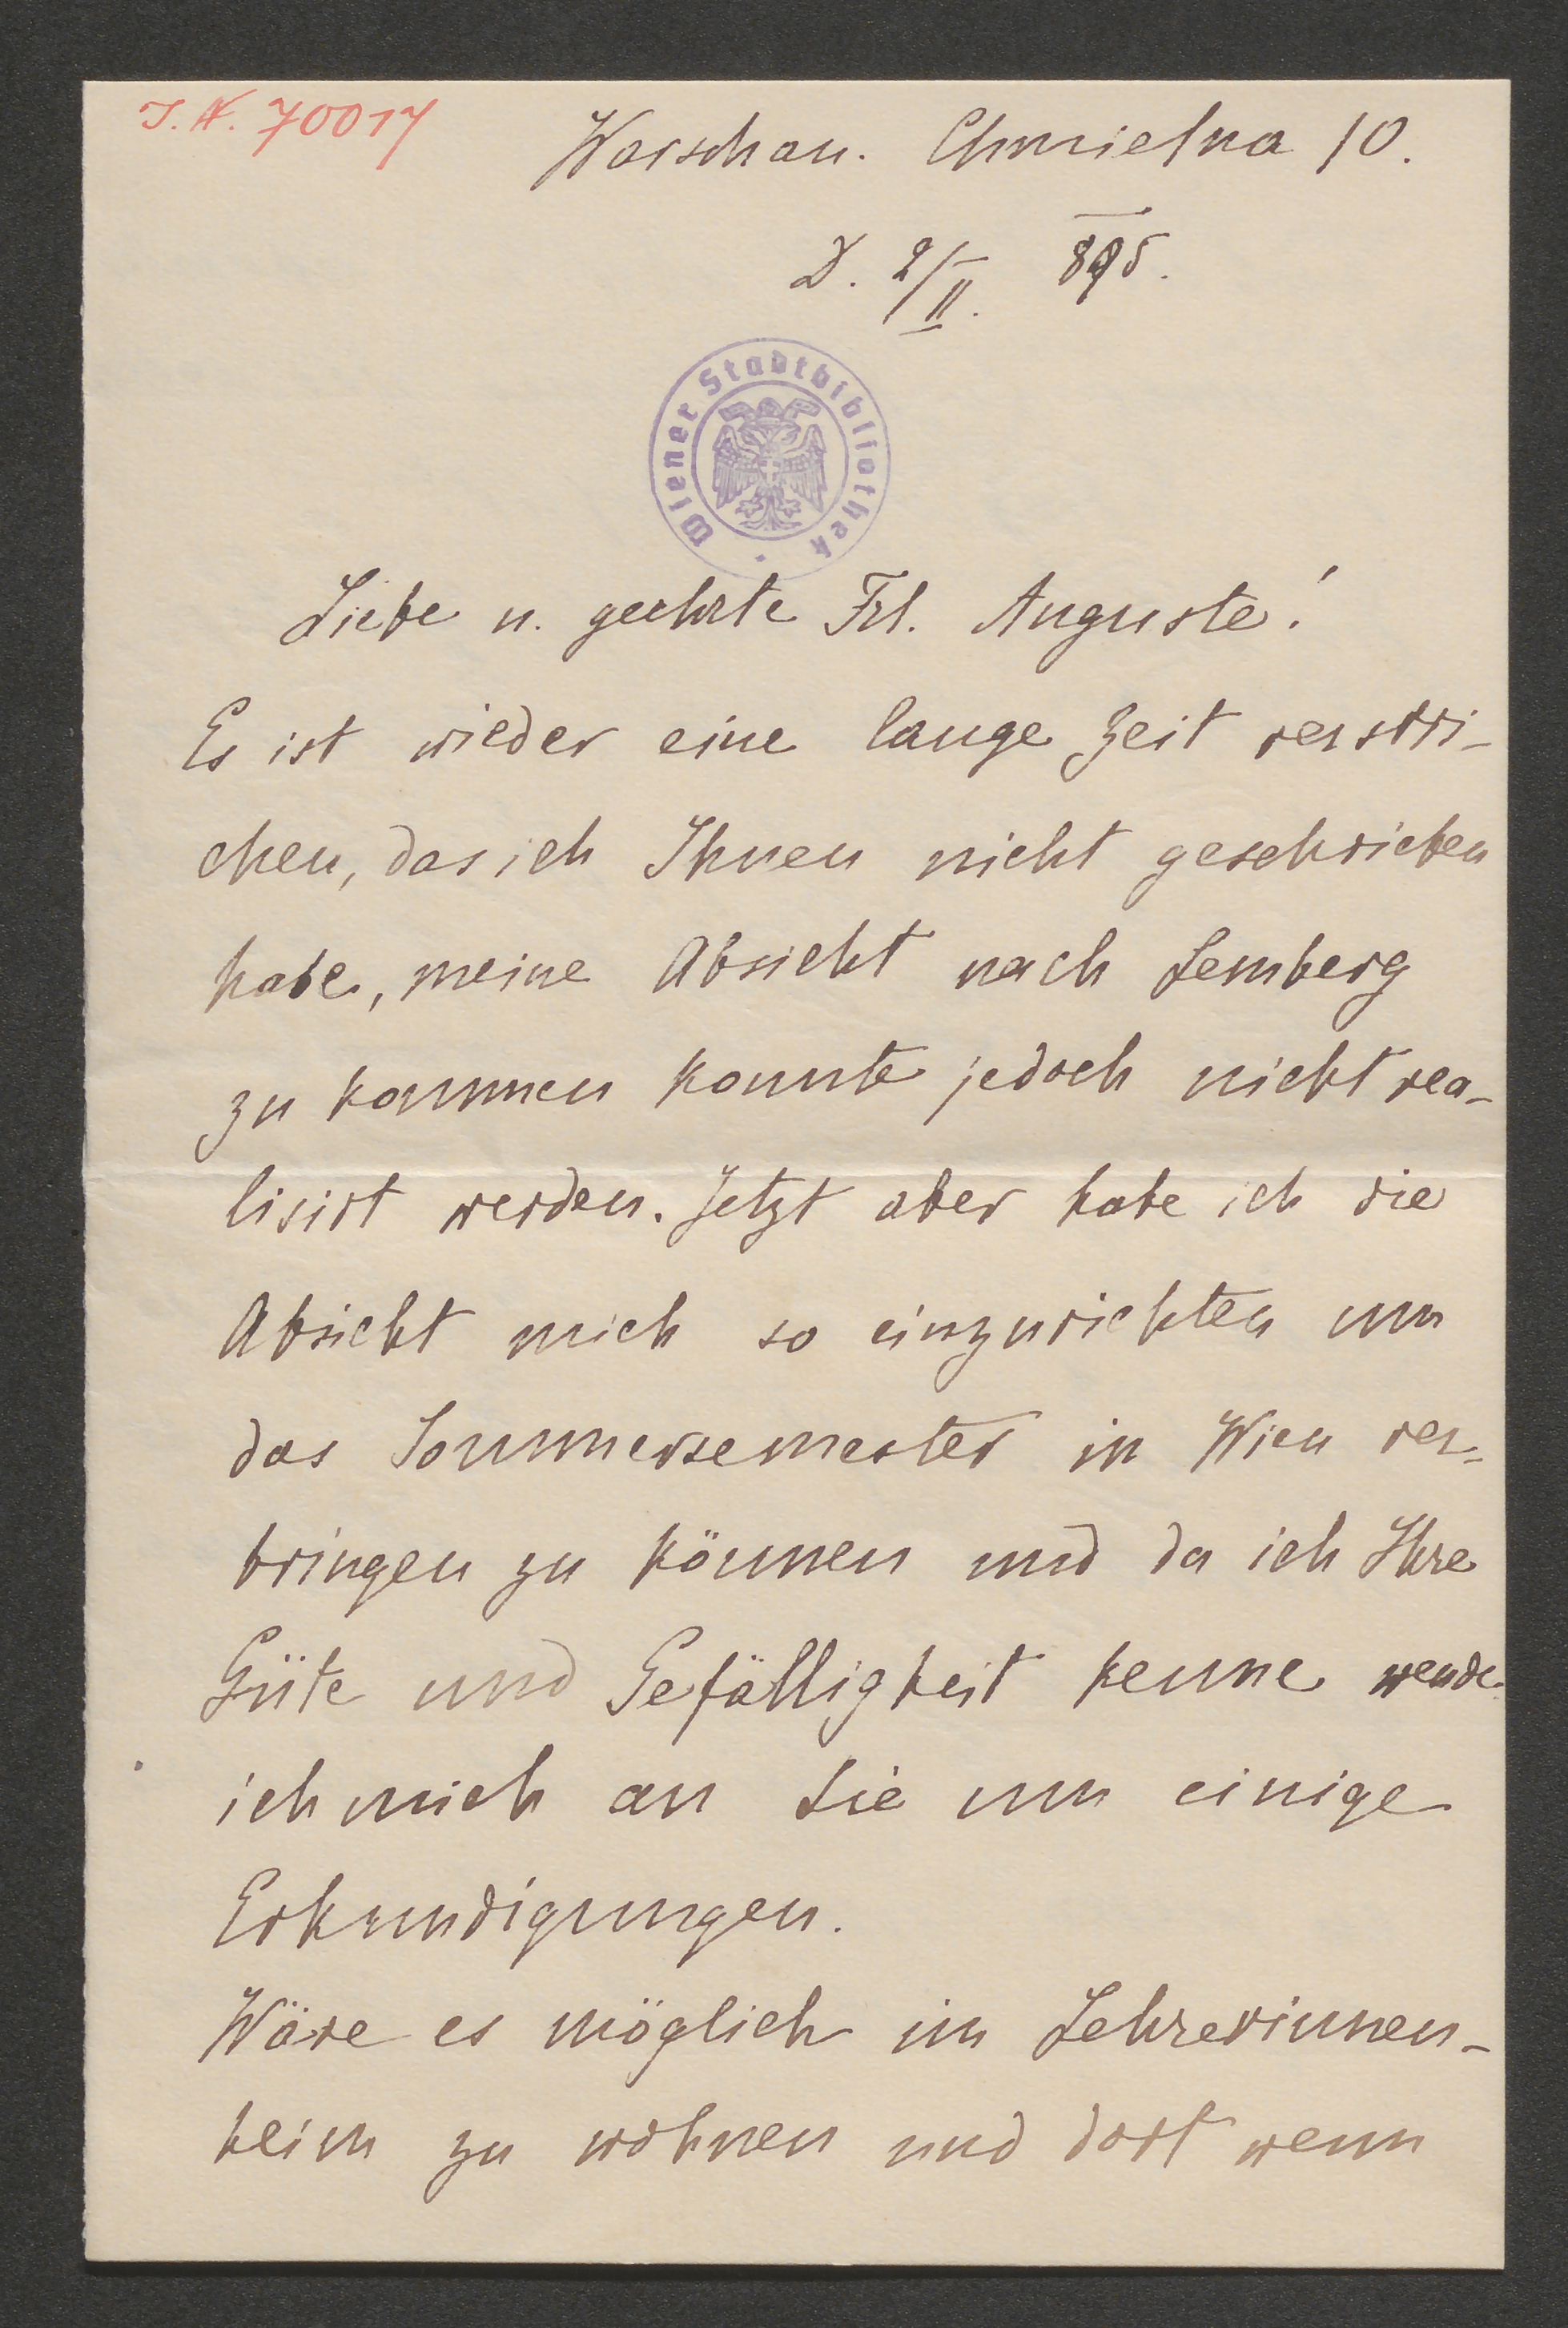 I. N. 70017
Warschau. Chmielna 10.
D. 2/II. 895.
Wiener Stadtbibliothek
Liebe u. geehrte Frl. Auguste!
Es ist wieder eine lange Zeit verstri-
chen, das ich Ihnen nicht geschrieben
habe, meine Absicht nach Lemberg
zu kommen konnte jedoch nicht rea-
lisirt werden. Jetzt aber habe ich die
Absicht mich so einzurichten um
das Sommersemester in Wien ver-
bringen zu können und da ich Ihre
Güte und Gefälligkeit kenne wende
ich mich an Sie um einige
Erkundigungen.
Wäre es möglich im Lehrerinnen-
heim zu wohnen und dort wenn